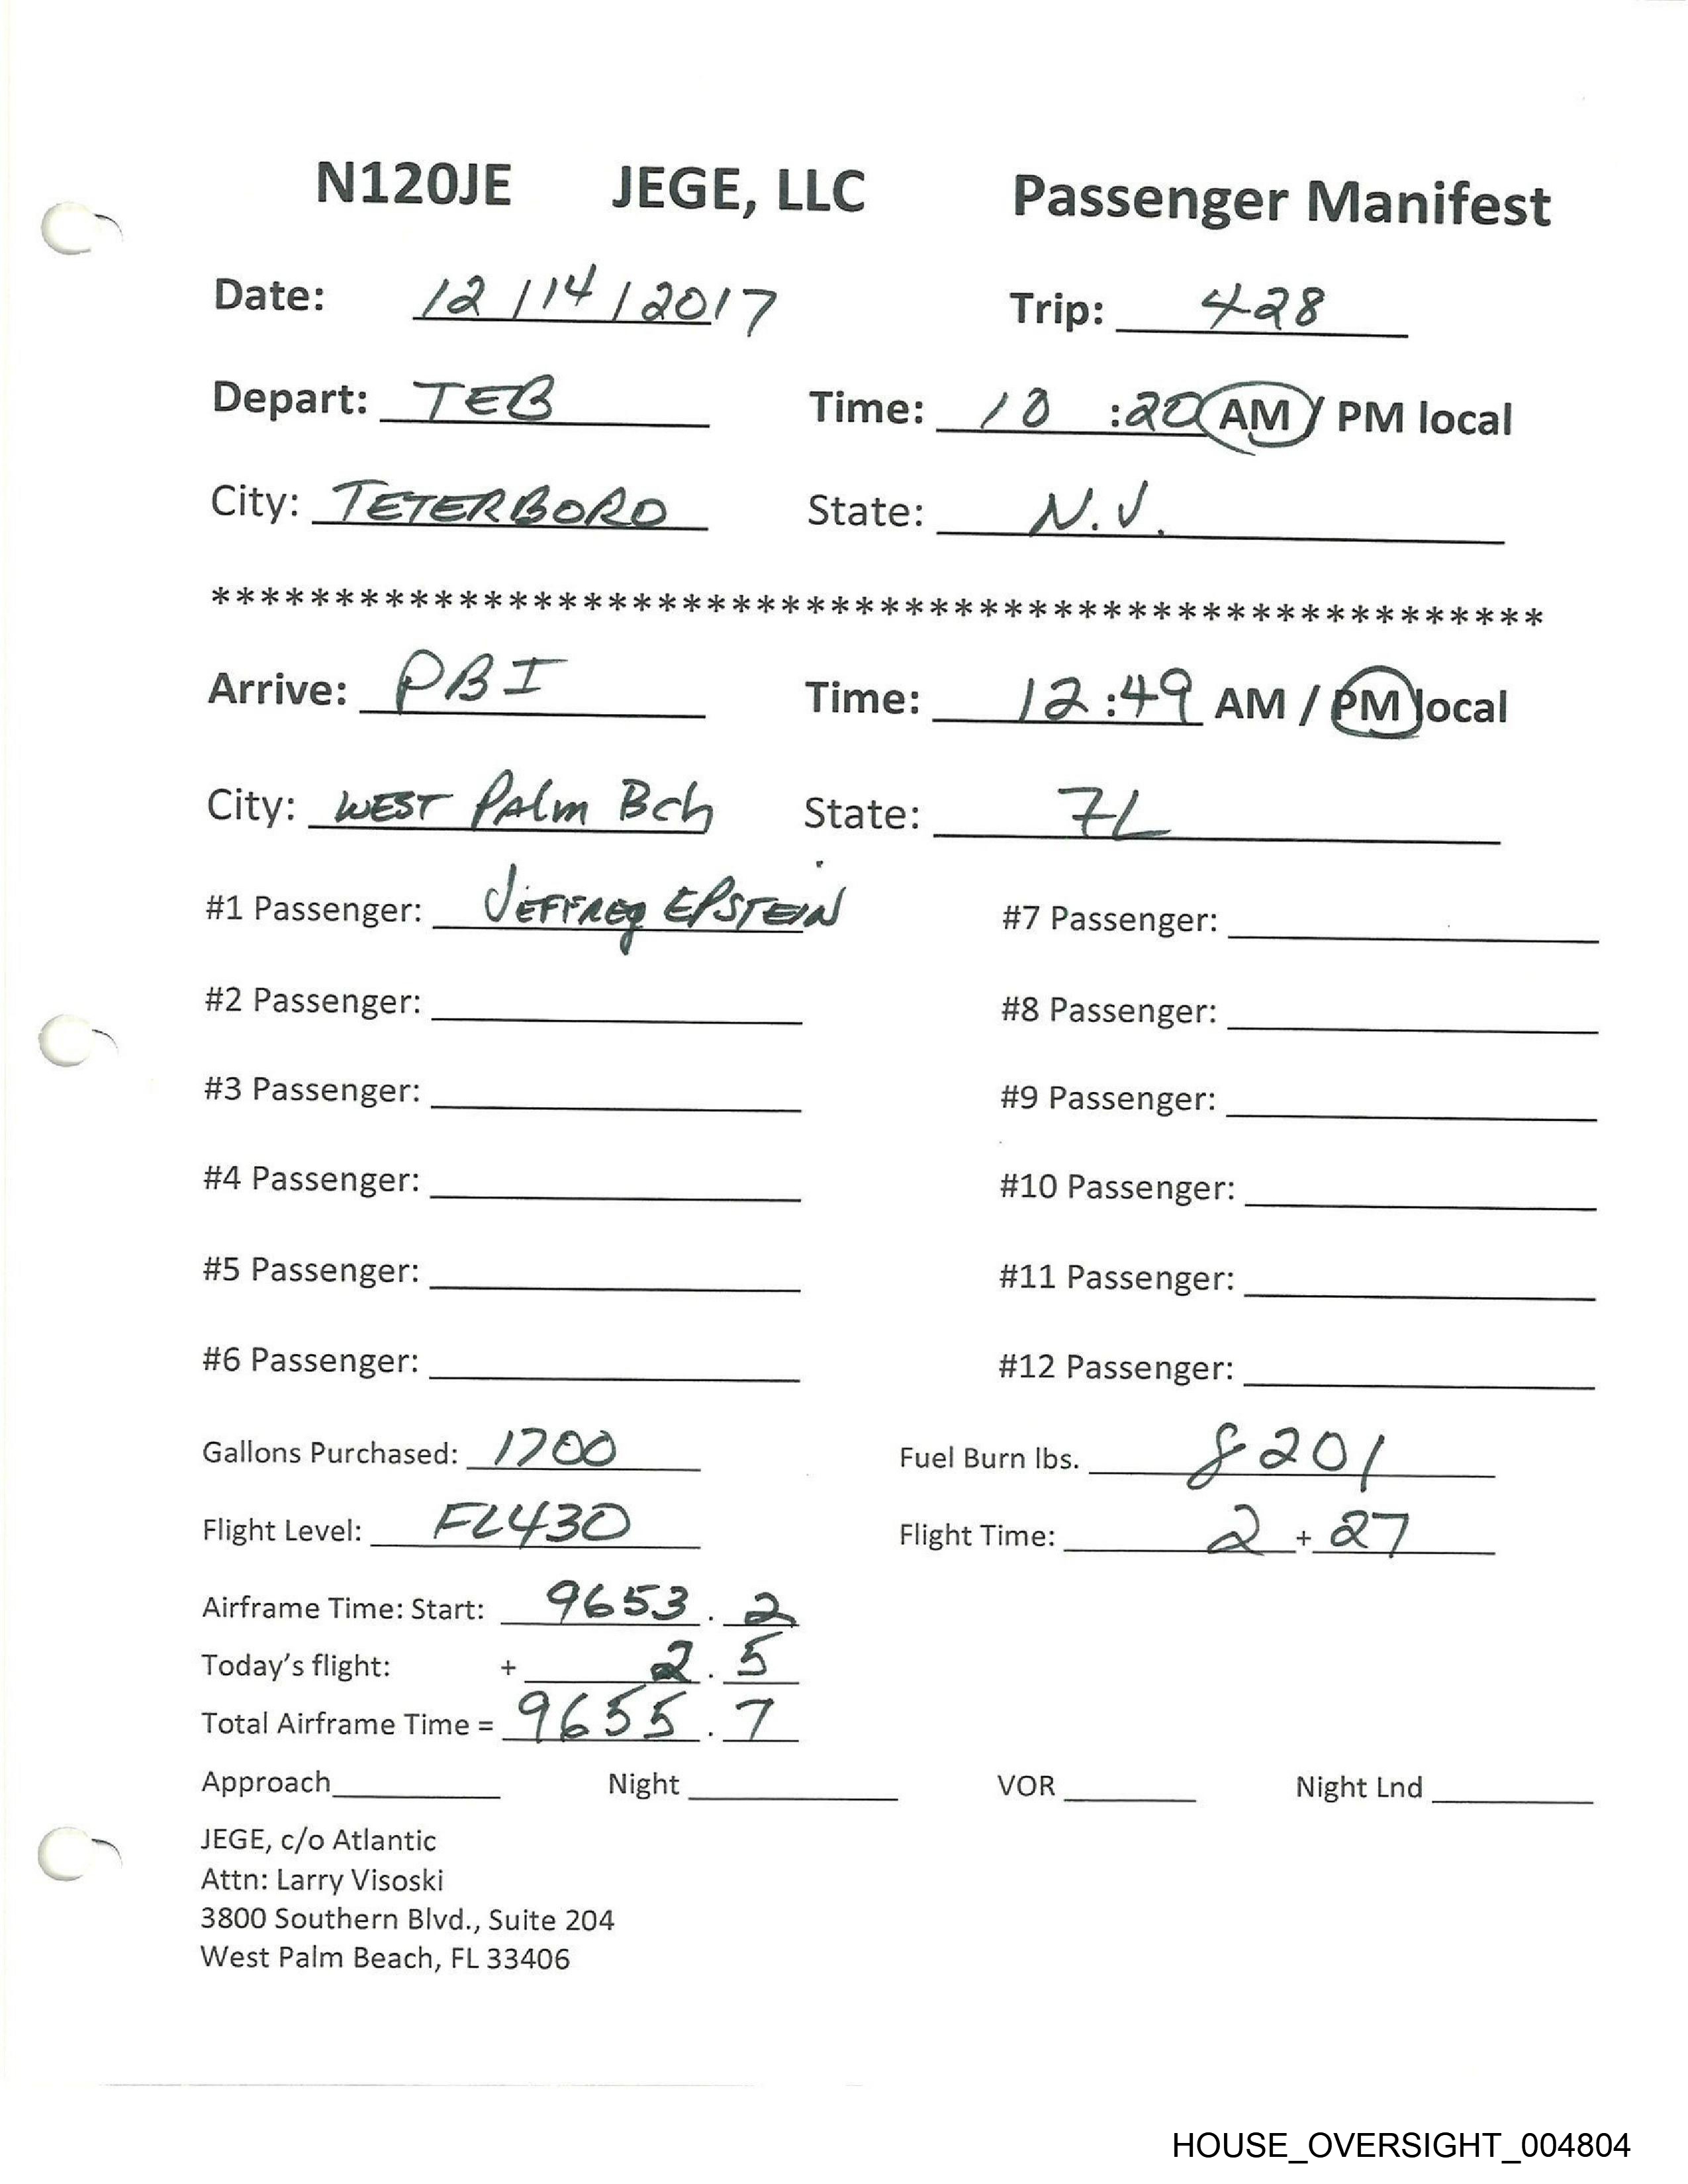 N120JE JEGE, LLC Passenger Manifest
Date: 12/14/2017 Trip: 428
Depart: TEB Time: 10:20 AM / PM local
City: TETERBORO State: N.J.
******************************************************
Arrive: PBI Time: 12:49 AM / PM local
City: WEST PAlm Bch State: FL
#1 Passenger: JEFFREy EPSTEIN #7 Passenger:
#2 Passenger: #8 Passenger:
#3 Passenger: #9 Passenger:
#4 Passenger: #10 Passenger:
#5 Passenger: #11 Passenger:
#6 Passenger: #12 Passenger:
Gallons Purchased: 1700 Fuel Burn lbs. 8201
Flight Level: FL430 Flight Time: 2 + 27
Airframe Time: Start: 9653.2
Today's flight: + 2.5
Total Airframe Time = 9655.7
Approach Night VOR Night Lnd
JEGE, c/o Atlantic
Attn: Larry Visoski
3800 Southern Blvd., Suite 204
West Palm Beach, FL 33406
HOUSE_OVERSIGHT_004804